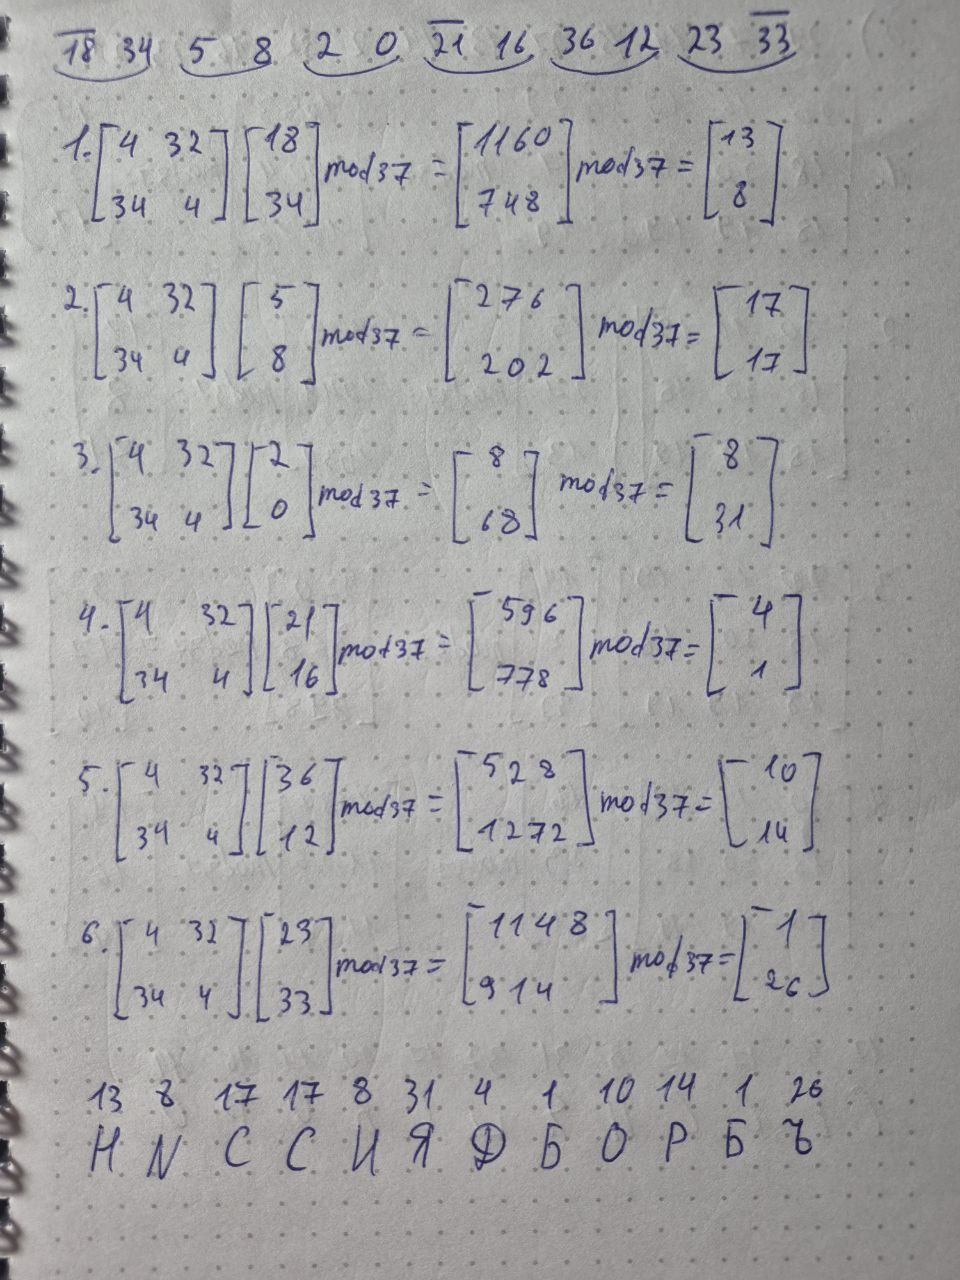 18 34 5 8 2 0 21 16 36 12 23 33
1. [4 32 34 4] [18 34] mod 37 = [1160 748] mod 37 = [13 8]
2. [4 32 34 4] [5 8] mod 37 = [276 202] mod 37 = [17 17]
3. [4 32 34 4] [2 0] mod 37 = [8 68] mod 37 = [8 31]
4. [4 32 34 4] [21 16] mod 37 = [596 778] mod 37 = [4 1]
5. [4 32 34 4] [36 12] mod 37 = [528 1272] mod 37 = [10 14]
6. [4 32 34 4] [23 33] mod 37 = [1148 914] mod 37 = [1 26]
13 8 17 17 8 31 4 1 10 14 1 26
Н И С С И Я Д Б О Р Б Ъ